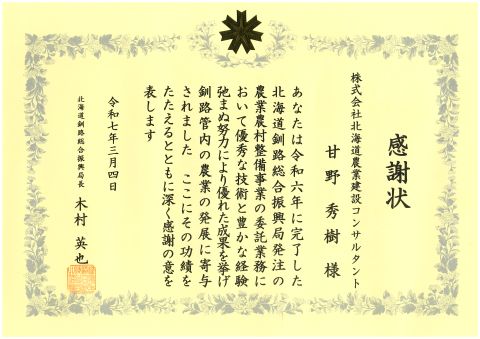 感謝状
株式会社北海道農業建設コンサルタント
甘野秀樹様
あなたは令和六年に完了した
北海道釧路総合振興局発注の
農業農村整備事業の委託業務に
おいて優秀な技術と豊かな経験
弛まぬ努力により優れた成果を挙げ
釧路管内の農業の発展に寄与
されました ここにその功績を
たたえるとともに深く感謝の意を
表します
令和七年三月四日
北海道釧路総合振興局長 木村英也